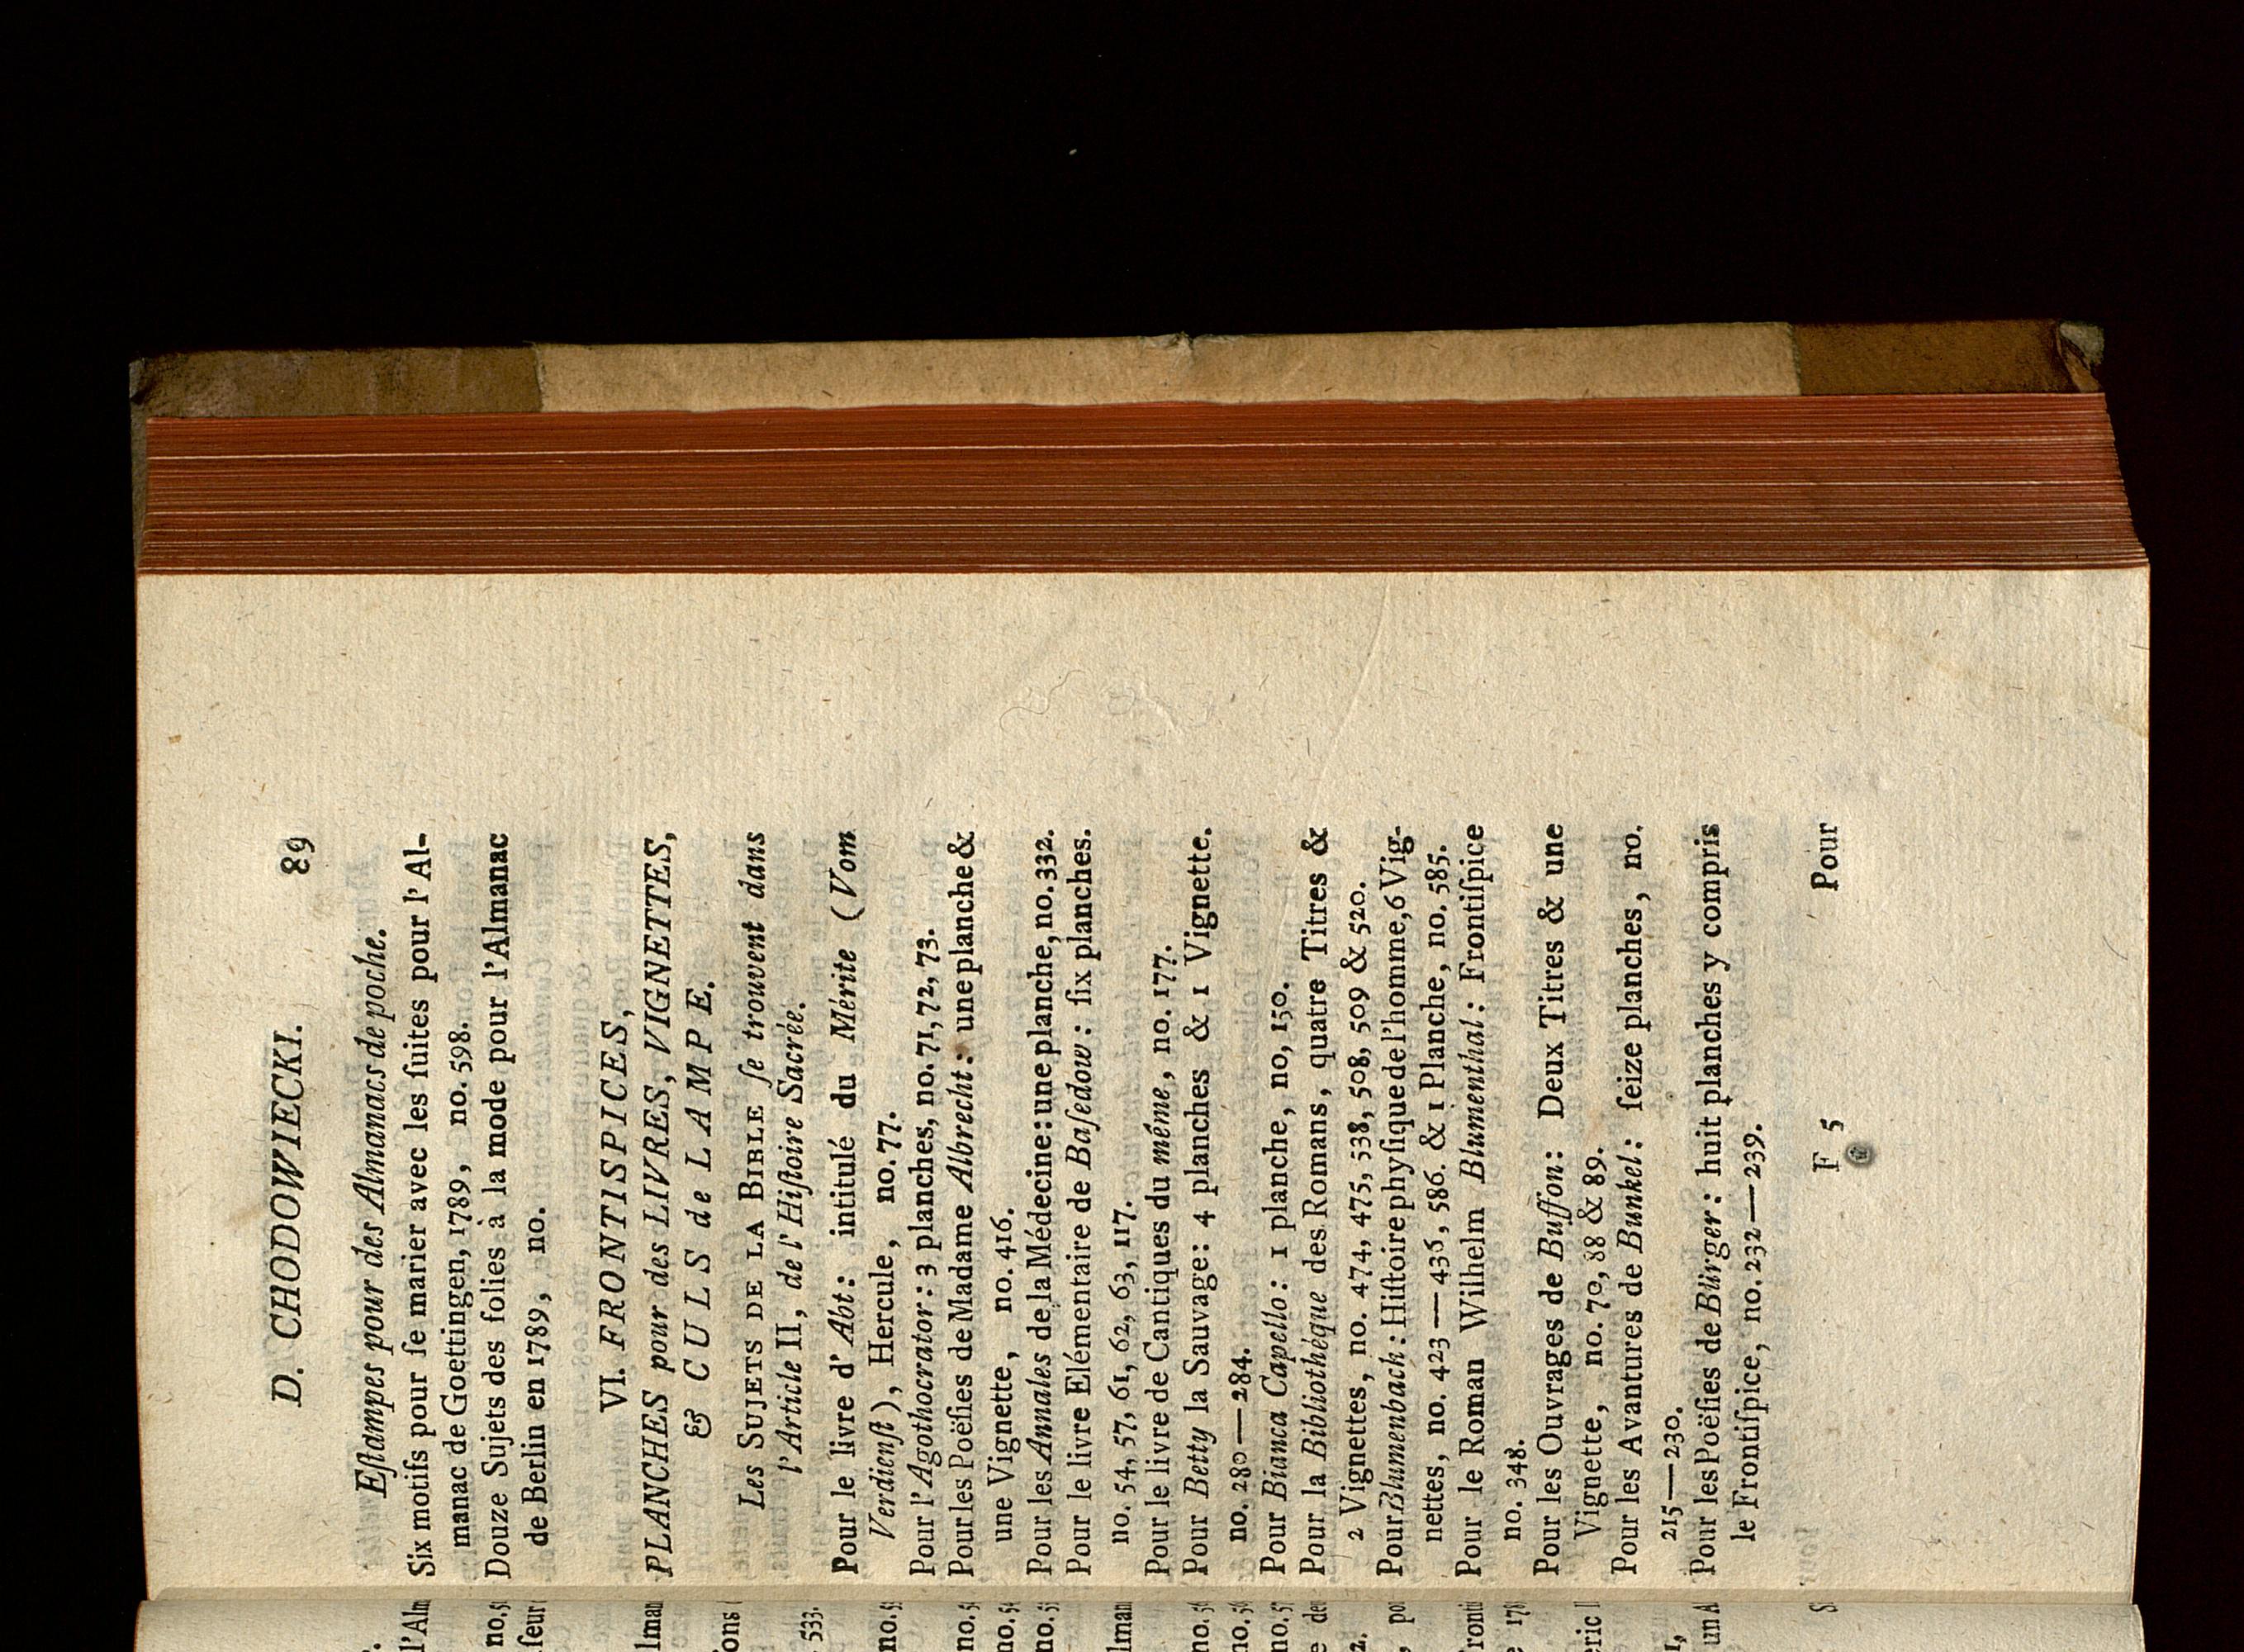 D. CHODOWIECKI. 89
Eſtampes pour des Almanacs de poche.
Six motifs pour ſe marier avec les ſuites pour l' Al-
manac de Goettingen, 1789, no. 598.
Douze Sujets des folies à la mode pour l'Almanac
de Berlin en 1789, no.
VI. FRONTISPICES,
PLANCHES pour des LIVRES, VIGNETTES,
& CULS de LAMPE.
Les SUJETS DE LA BIBLE ſe trouvent dans
l'Article II, de l' Hiſtoire Sacrée.
Pour le livre d'Abt: intitulé du Mérite (Vom
Verdienſt), Hercule, no. 77.
Pour l'Agothocrator: 3 planches, no. 71, 72, 73.
Pour les Poëſies de Madame Albrecht: une planche &
une Vignette, no. 416.
Pour les Annales de la Médecine: une planche, no. 332.
Pour le livre Elémentaire de Baſedow: ſix planches.
no. 54, 57, 61, 62, 63, 117.
Pour le livre de Cantiques du même, no. 177.
Pour Betty la Sauvage: 4 planches & 1 Vignette.
no. 280—284.
Pour Bianca Capello: 1 planche, no, 150.
Pour la Bibliothéque des Romans, quatre Titres &
2 Vignettes, no. 474, 475, 538, 508, 509 & 520.
Pour Blumenbach: Hiſtoire phyſique de l'homme, 6 Vig-
nettes, no. 423—436, 586. & 1 Planche, no. 585.
Pour le Roman Wilhelm Blumenthal: Frontiſpice
no. 348.
Pour les Ouvrages de Buffon: Deux Titres & une
Vignette, no. 70, 88 & 89.
Pour les Avantures de Bunkel: ſeize planches, no.
215—230.
Pour les Poëſies de Bürger: huit planches y compris
le Frontiſpice, no. 232—239.
F 5 Pour